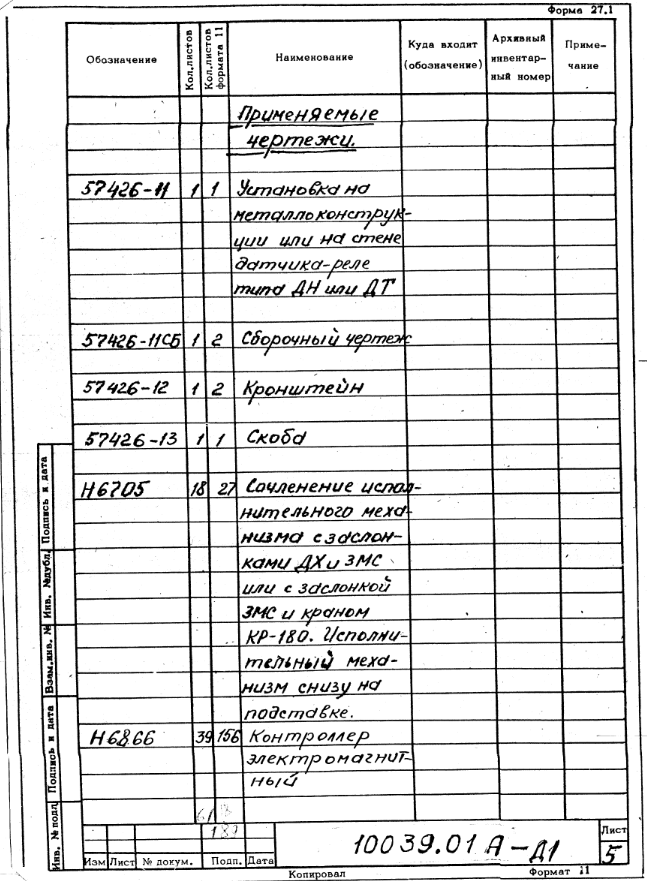 Форма 27.1
Обозначение
Кол.листов
Кол.листов формата 11
Наименование
Куда входит (обозначение)
Архивный инвентар-ный номер
Приме-чание
Применяемые
чертежи.
57426-11 1 1 Установка на
металлоконструк-
ции или на стене
датчика-реле
типа ДН или ДТ
57426-11СБ 1 2 Сборочный чертеж
57426-12 1 2 Кронштейн
57426-13 1 1 Скоба
Н6705 18 27 Сочленение испол-
нительного меха-
низма с заслон-
ками ДХ и ЗМС
или с заслонкой
ЗМС и краном
КР-180. Исполни-
тельный меха-
низм снизу на
подставке.
Н6866 39 156 Контроллер
электромагнит-
ный
Инв. № подл.
Подпись и дата
Взам.инв. №
Инв. №дубл.
Подпись и дата
Изм Лист № докум. Подп. Дата
10039.01 А-Д1
Лист
5
Копировал
Формат 11